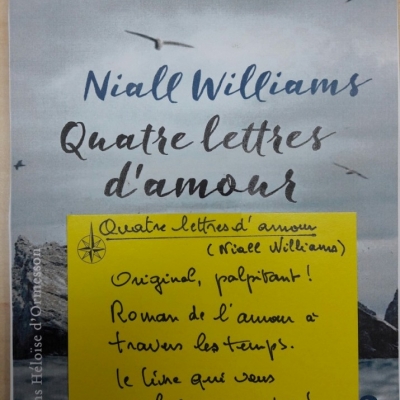 Niall Williams
Quatre lettres
d'amour
ns Héloïse d'Ormesson
Quatre lettres d'amour
(Niall Williams)
Original, palpitant !
Roman de l'amour à
travers les temps.
le livre qui vous